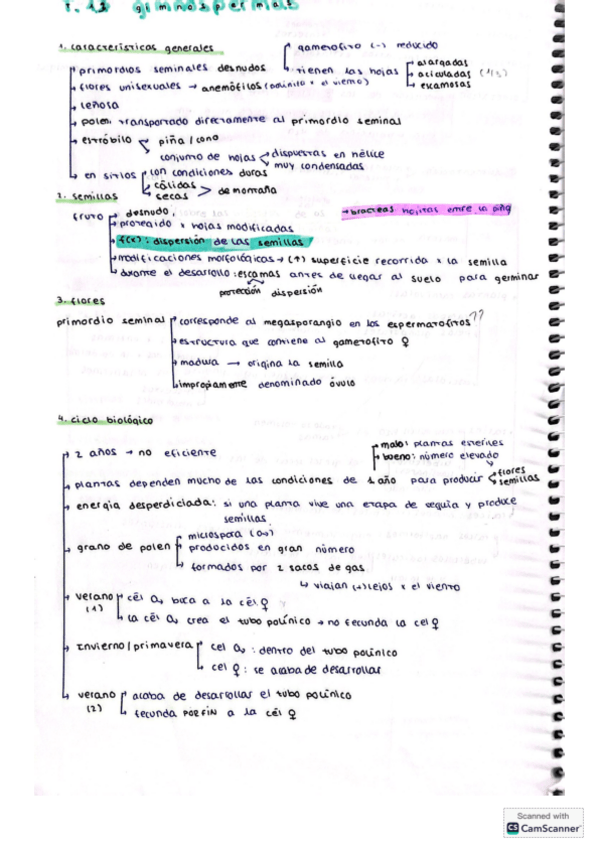 T. 13 gimnospermas
1. características generales
gametofito (-) reducido
primordios seminales desnudos
tienen las hojas
alargadas
aciculadas
escamosas
flores unisexuales → anemófilos
leñosa
polen transportado directamente al primordio seminal
estróbilo
piña / cono
conjunto de hojas
dispuestas en hélice
muy condensadas
en sitios
con condiciones duras
cálidas
secas
de montaña
2. semillas
fruto
desnudo,
protegido x hojas modificadas
→ bracteas hojitas entre la piña
f(x): dispersión de las semillas
modificaciones morfológicas → (↑) superficie recorrida x la semilla
durante el desarollo: escamas antes de llegar al suelo para germinar
protección dispersión
3. flores
primordio seminal
corresponde al megasporangio en los espermatofitos??
estructura que contiene al gametofito ♀
madura → origina la semilla
impropiamente denominado óvulo
4. ciclo biológico
2 años → no eficiente
malo: plantas estériles
bueno: número elevado
plantas dependen mucho de las condiciones de 1 año para producir
flores
semillas
energía desperdiciada: si una planta vive una etapa de sequía y produce
semillas
grano de polen
microspora (♂)
producidos en gran número
formados por 2 sacos de gas
↳ viajan (+) lejos x el viento
verano (1)
cél ♂ busca a la cél ♀
la cél ♂ crea el tubo polínico → no fecunda la cel ♀
Invierno / primavera
cel ♂: dentro del tubo polínico
cel ♀: se acaba de desarrollar
verano (2)
acaba de desarrollar el tubo polínico
fecunda POR FIN a la cél ♀
Scanned with
CS CamScanner